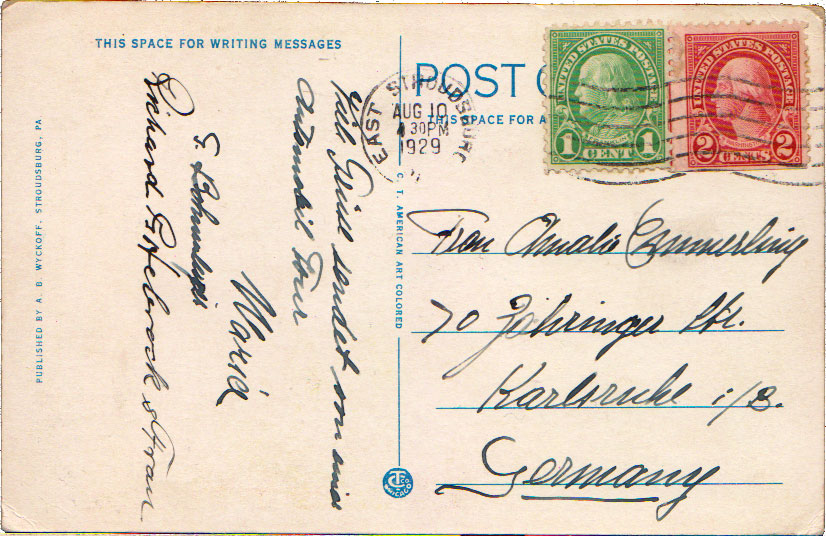 THIS SPACE FOR WRITING MESSAGES
POST C
THIS SPACE FOR A
UNITED STATES POSTA
1 CENT 1
UNITED STATES POSTAGE
2 CENTS 2
EAST STROUDSBURG
AUG 10
4 30PM
1929
Viel Grüße sendet von einer
Automobil Tour
Maria
Richard & Frau
Frau Amalie Emmerling
70 Zähringer Str.
Karlsruhe i/B.
Germany
C. T. AMERICAN ART COLORED
PUBLISHED BY A. B. WYCKOFF, STROUDSBURG, PA